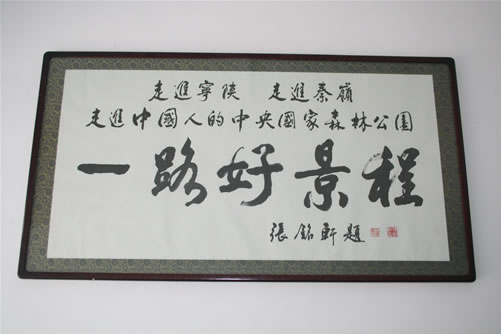 走進寧陝 走進秦嶺
走進中國人的中央國家森林公園
一路好景程
張銘軒題